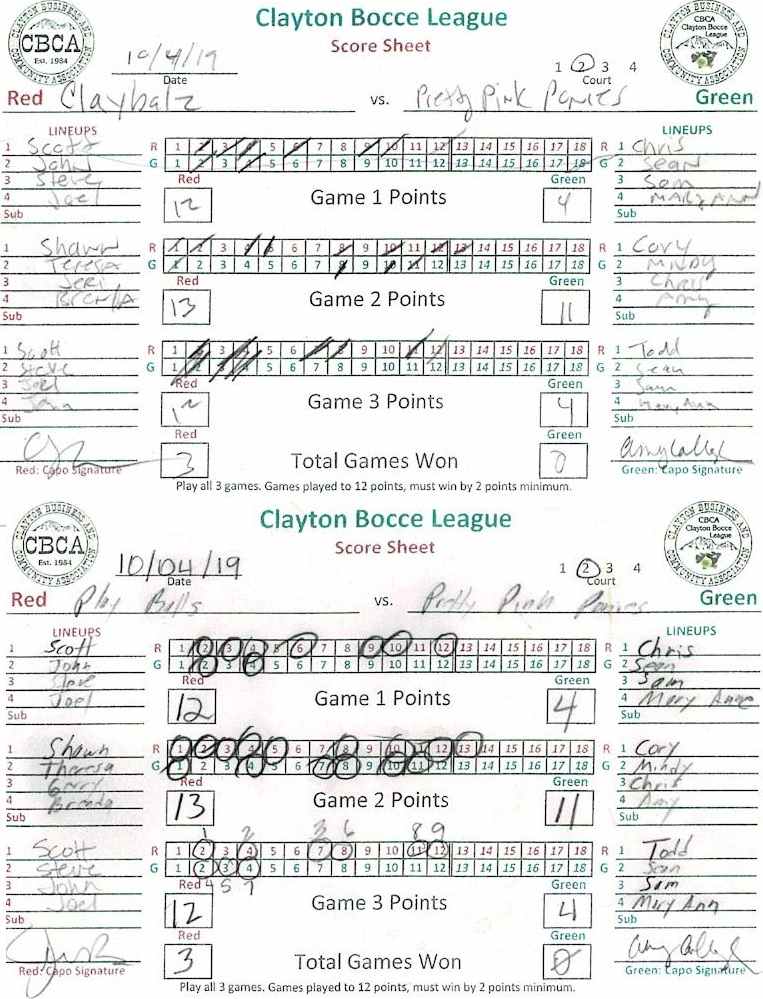 Clayton Bocce League
Score Sheet
CLAYTON BUSINESS AND COMMUNITY ASSOCIATION
CBCA
Est. 1984
CBCA
Clayton Bocce
League
10/4/19
Date
1 2 3 4
Court
Red Claybalz vs. Pretty Pink Ponies Green
LINEUPS LINEUPS
1 Scott R 1 2 3 4 5 6 7 8 9 10 11 12 13 14 15 16 17 18 R 1 Chris
2 John G 1 2 3 4 5 6 7 8 9 10 11 12 13 14 15 16 17 18 G 2 Sean
3 Steve Red Green 3 Sam
4 Joel 12 Game 1 Points 4 4 Mary Ann
Sub Sub
1 Shawn R 1 2 3 4 5 6 7 8 9 10 11 12 13 14 15 16 17 18 R 1 Cory
2 Teresa G 1 2 3 4 5 6 7 8 9 10 11 12 13 14 15 16 17 18 G 2 Mindy
3 Jeri Red Green 3 Chris
4 Brenda 13 Game 2 Points 11 4 Amy
Sub Sub
1 Scott R 1 2 3 4 5 6 7 8 9 10 11 12 13 14 15 16 17 18 R 1 Todd
2 Steve G 1 2 3 4 5 6 7 8 9 10 11 12 13 14 15 16 17 18 G 2 Sean
3 Joel Red Green 3 Sam
4 John 12 Game 3 Points 4 4 Mary Ann
Sub Red Green Sub
3 Total Games Won 0
Red: Capo Signature Green: Capo Signature
Play all 3 games. Games played to 12 points, must win by 2 points minimum.
Clayton Bocce League
Score Sheet
CLAYTON BUSINESS AND COMMUNITY ASSOCIATION
CBCA
Est. 1984
CBCA
Clayton Bocce
League
10/04/19
Date
1 2 3 4
Court
Red Play Balls vs. Pretty Pink Ponies Green
LINEUPS LINEUPS
1 Scott R 1 2 3 4 5 6 7 8 9 10 11 12 13 14 15 16 17 18 R 1 Chris
2 John G 1 2 3 4 5 6 7 8 9 10 11 12 13 14 15 16 17 18 G 2 Sean
3 Steve Red Green 3 Sam
4 Joel 12 Game 1 Points 4 4 Mary Anne
Sub Sub
1 Shawn R 1 2 3 4 5 6 7 8 9 10 11 12 13 14 15 16 17 18 R 1 Cory
2 Theresa G 1 2 3 4 5 6 7 8 9 10 11 12 13 14 15 16 17 18 G 2 Mindy
3 Gerry Red Green 3 Chris
4 Brenda 13 Game 2 Points 11 4 Amy
Sub Sub
1 2 3 6 8 9
1 Scott R 1 2 3 4 5 6 7 8 9 10 11 12 13 14 15 16 17 18 R 1 Todd
2 Steve G 1 2 3 4 5 6 7 8 9 10 11 12 13 14 15 16 17 18 G 2 Sean
3 John Red 4 5 7 Green 3 Sam
4 Joel 12 Game 3 Points 4 4 Mary Ann
Sub Red Green Sub
3 Total Games Won 0
Red: Capo Signature Green: Capo Signature
Play all 3 games. Games played to 12 points, must win by 2 points minimum.